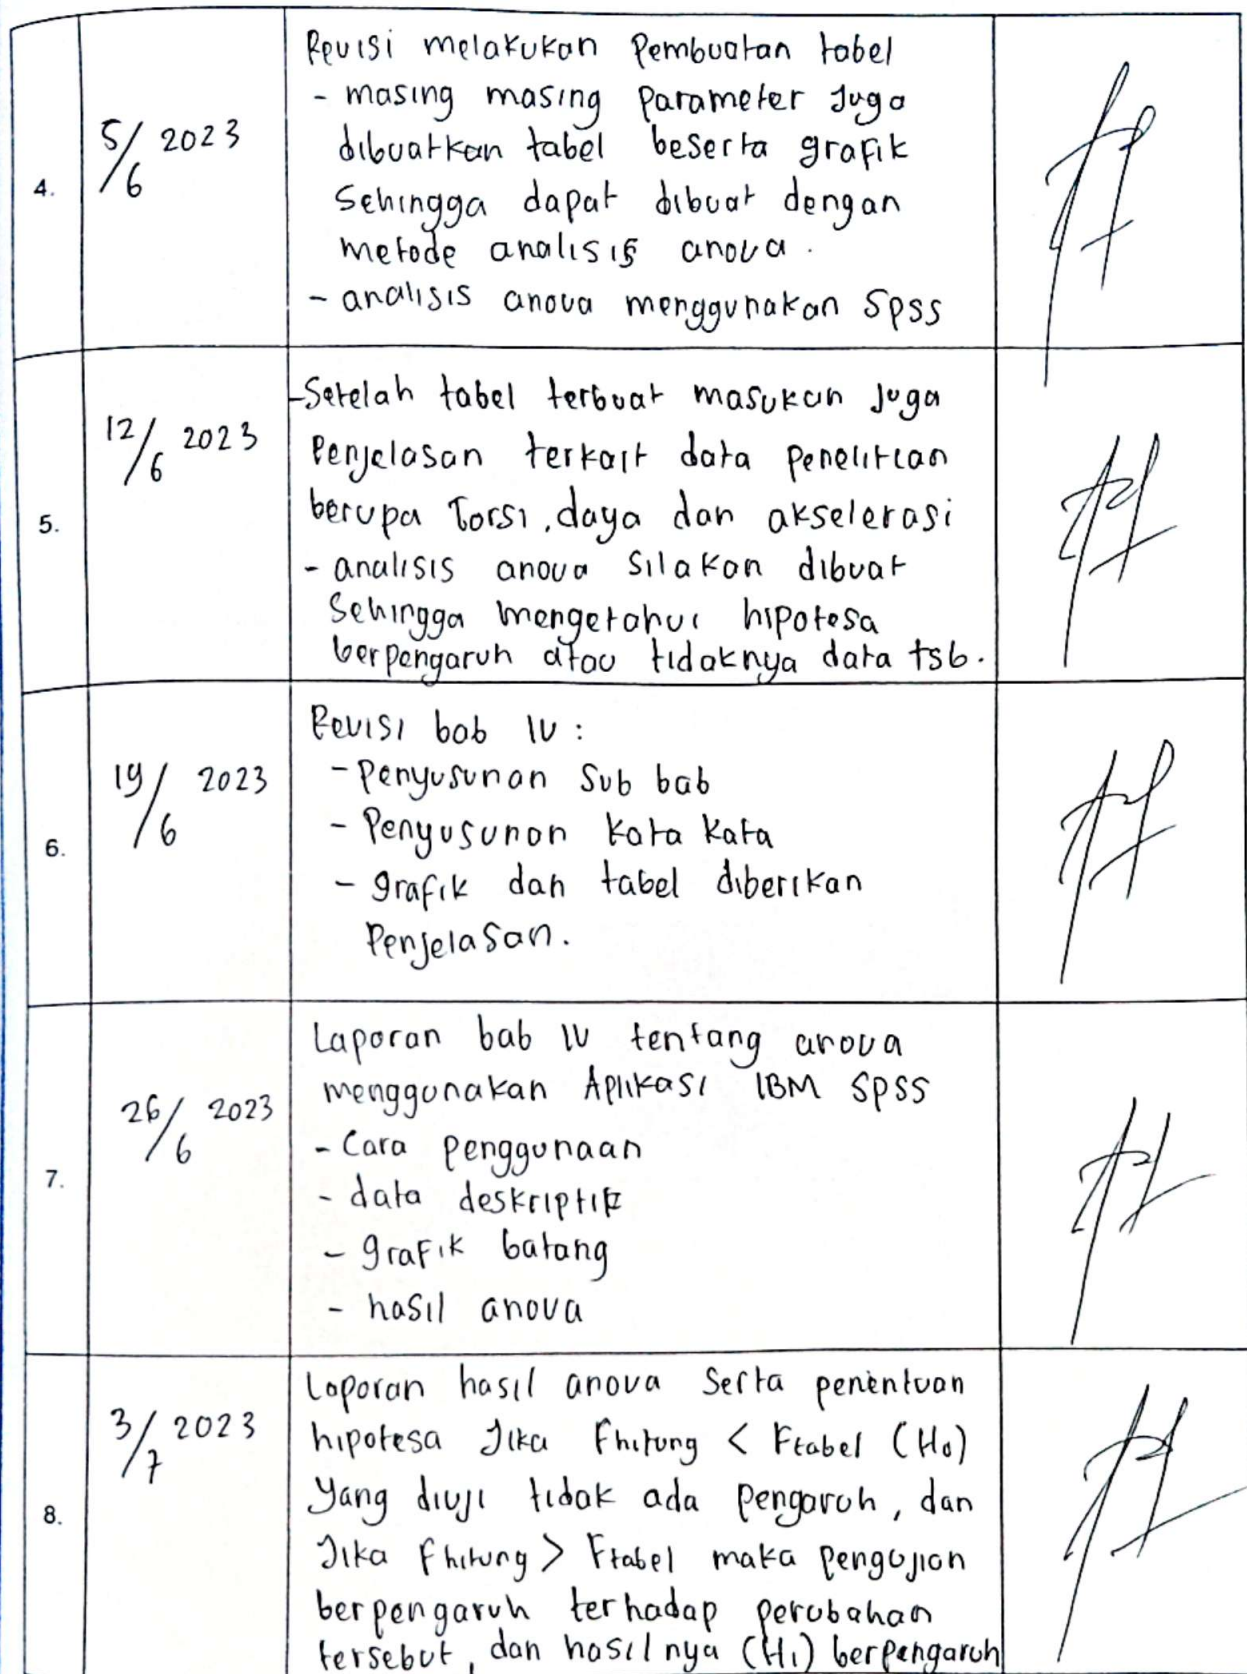 4.
5/6 2023
Revisi melakukan Pembuatan tabel
- masing masing parameter Juga
dibuatkan tabel beserta grafik
Sehingga dapat dibuat dengan
metode analisis anova.
- analisis anova menggunakan Spss
5.
12/6 2023
-Setelah tabel terbuat masukan Juga
Penjelasan terkait data penelitian
berupa Torsi, daya dan akselerasi
- analisis anova Silakan dibuat
Sehingga mengetahui hipotesa
berpengaruh atau tidaknya data tsb.
6.
19/6 2023
Revisi bab IV :
- Penyusunan Sub bab
- Penyusunan kata kata
- grafik dan tabel diberikan
Penjelasan.
7.
26/6 2023
Laporan bab IV tentang anova
menggunakan Aplikasi IBM SPSS
- Cara penggunaan
- data deskriptif
- grafik batang
- hasil anova
8.
3/7 2023
Laporan hasil anova Serta penentuan
hipotesa Jika Fhitung < Ftabel (H0)
Yang diuji tidak ada pengaruh, dan
Jika Fhitung > Ftabel maka pengujian
berpengaruh terhadap perubahan
tersebut, dan hasilnya (H1) berpengaruh